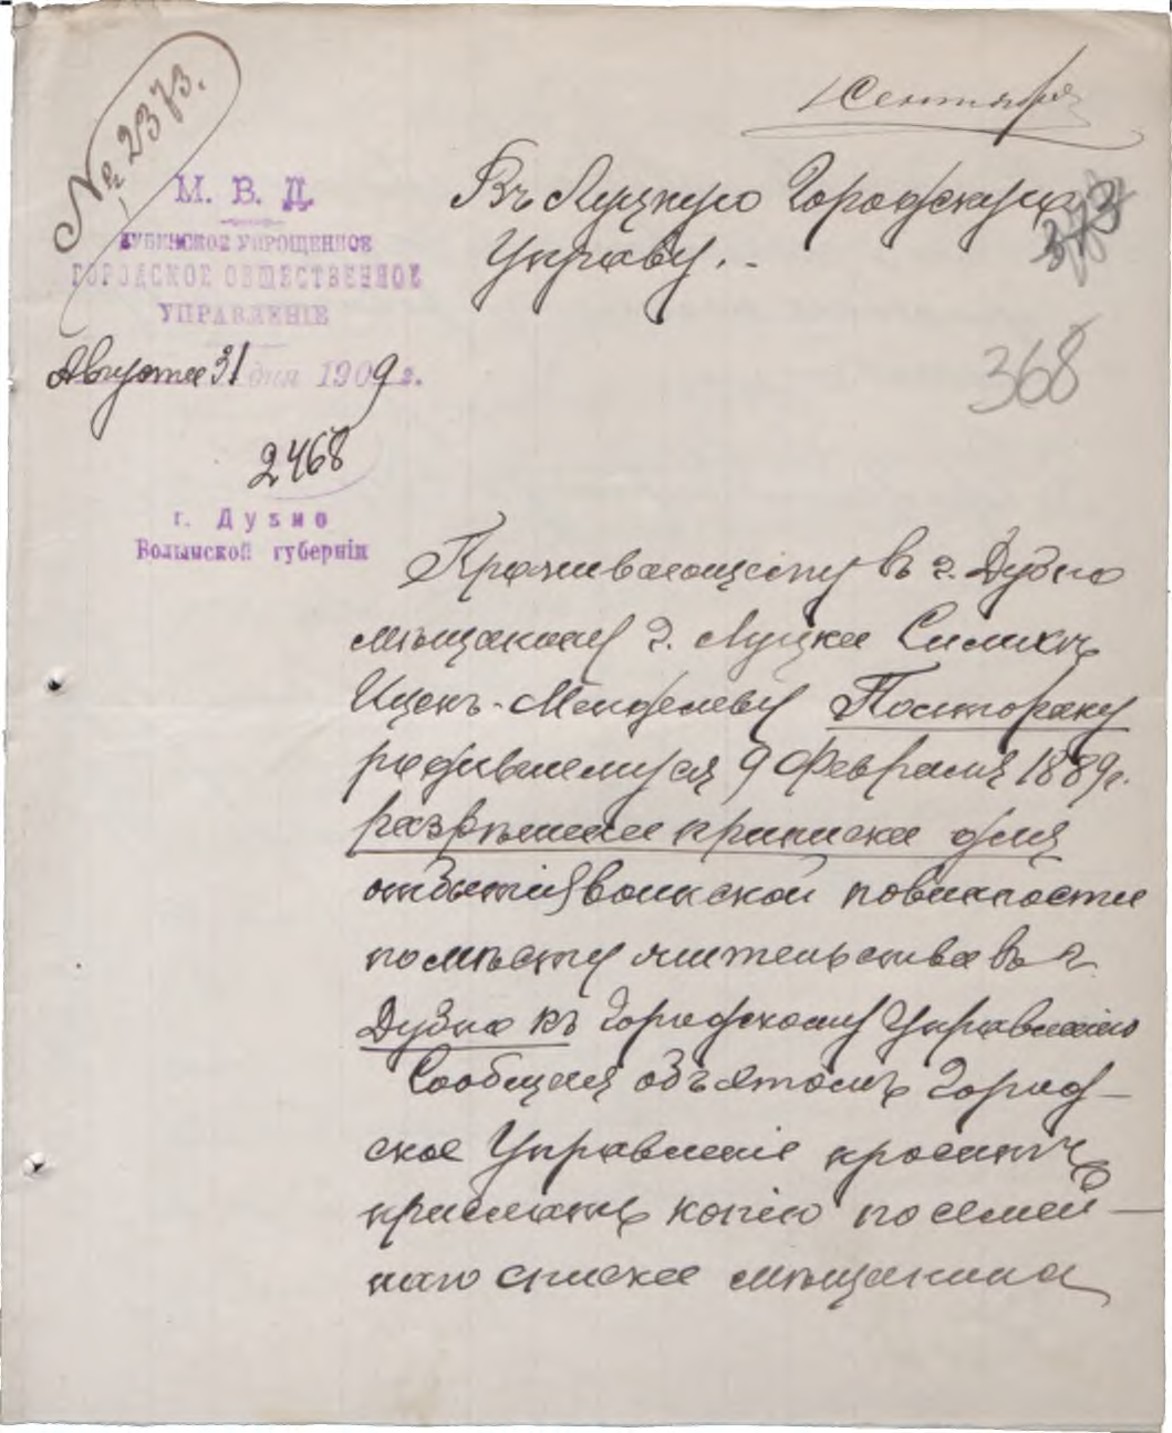 № 2373.
1 Сентября
М. В. Д.
ДУБЕНСКОЕ УПРОЩЕННОЕ
ГОРОДСКОЕ ОБЩЕСТВЕННОЕ
УПРАВЛЕНІЕ
Августа 31 дня 1909 г.
2468
г. Дубно
Волынской губерніи
Въ Луцкую Городскую
Управу.
373
368
Проживающему въ г. Дубно
мѣщанину г. Луцка
Ицекъ-Менделеву
родившемуся 9 Февраля 1889 г.
разрѣшена приписка для
отбытія воинской повинности
по мѣсту жительства въ г.
Дубно къ Городскому Управленію
Сообщая объ этомъ Город-
ское Управленіе проситъ
прислать копію посемей-
наго списка мѣщанина